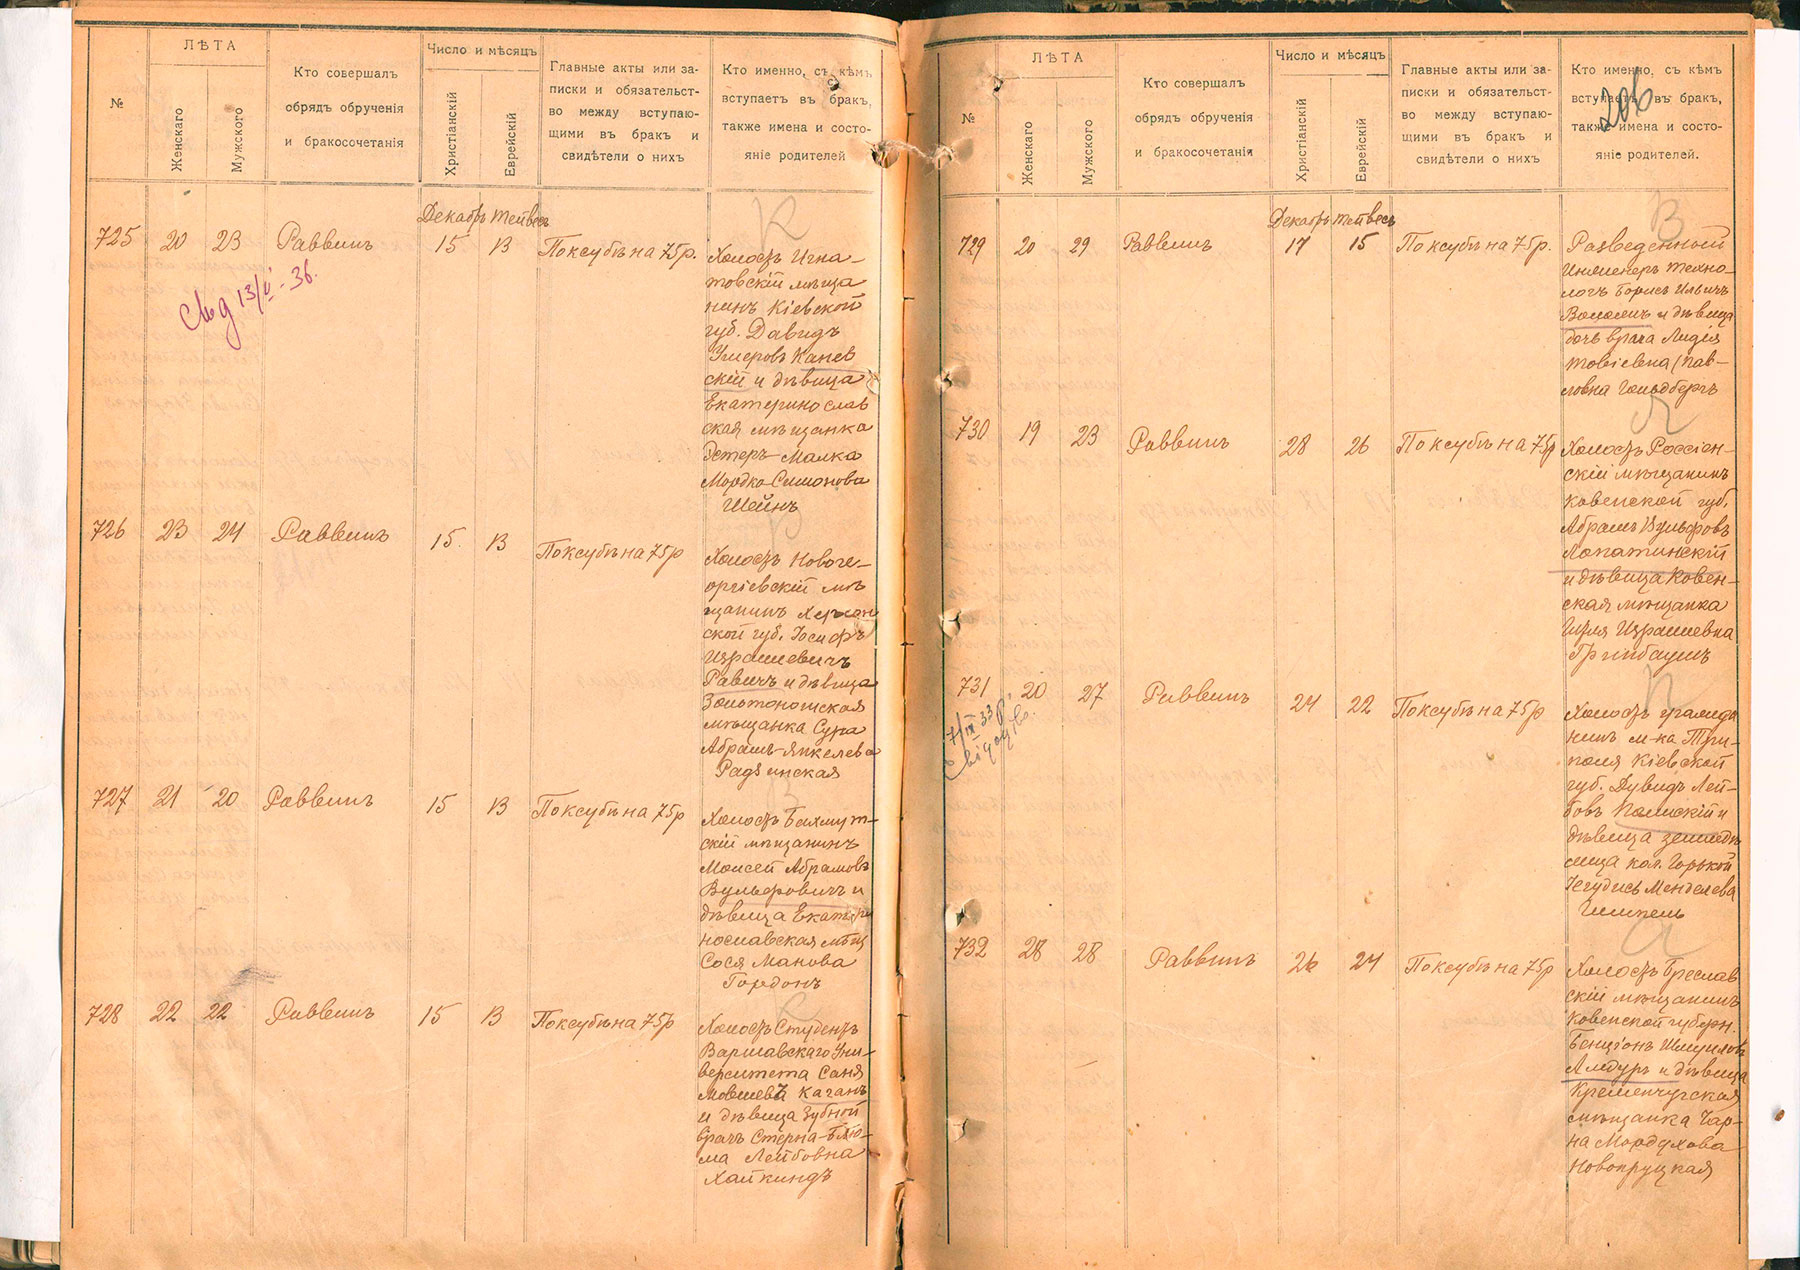 №
ЛѢТА
Женскаго
Мужского
Кто совершалъ
обрядъ обрученія
и бракосочетанія
Число и мѣсяцъ
Христіанскій
Еврейскій
Главные акты или за-
писки и обязательст-
во между вступаю-
щими въ бракъ и
свидѣтели о нихъ
Кто именно, съ кѣмъ
вступаетъ въ бракъ,
также имена и состо-
яніе родителей
Декабрь Тейвесъ
725 20 23 Раввинъ 15 13 По ксубѣ на 75 р.
К
Холостъ Игна-
товскій мѣща
нинъ Кіевской
губ. Давидъ
Умеровъ Канев
скій и дѣвица
Екатеринослав
ская мѣщанка
Эстеръ-Малка
Мордко-Симонова
Шейнъ
13/V-36.
726 23 24 Раввинъ 15 13 По ксубѣ на 75 р
Р
Холостъ Новоге-
оргіевскій мѣ
щанинъ Херсон
ской губ. Іосифъ
Израилевичъ
Равичъ и дѣвица
Золотоношская
мѣщанка Сура
Абрамъ-Янкелева
Радзинская
727 21 20 Раввинъ 15 13 По ксубѣ на 75 р
В
Холостъ Бахмут-
скій мѣщанинъ
Моисей Абрамовъ
Вульфовичъ и
дѣвица Екатери
нославская мѣщ
Сося Манова
Гордонъ
728 22 22 Раввинъ 15 13 По ксубѣ на 75 р
Холостъ Студентъ
Варшавскаго Уни-
верситета Саня
Мовшевъ Каганъ
и дѣвица Зубной
врачъ Стерна-Блю-
ма Лейбовна
Хайкиндъ
206
№
ЛѢТА
Женскаго
Мужского
Кто совершалъ
обрядъ обрученія
и бракосочетанія
Число и мѣсяцъ
Христіанскій
Еврейскій
Главные акты или за-
писки и обязательст-
во между вступаю-
щими въ бракъ и
свидѣтели о нихъ
Кто именно, съ кѣмъ
вступаетъ въ бракъ,
также имена и состо-
яніе родителей.
Декабрь Тейвесъ
729 20 29 Раввинъ 17 15 По ксубѣ на 75 р.
В
Разведенный
Инженеръ Техно-
логъ Борисъ Ильичъ
и дѣвица
дочь врача Лидія
Товіевна (Пав-
ловна Гольдбергъ
730 19 23 Раввинъ 28 26 По ксубѣ на 75 р
Л
Холостъ Россіен-
скій мѣщанинъ
Ковенской губ.
Абрамъ Вульфовъ
Лопатинскій
и дѣвица Ковен-
ская мѣщанка
Израилевна
Гринбаумъ
731 20 27 Раввинъ 24 22 По ксубѣ на 75 р
П
7/IX 33 р.
Холостъ гражда
нинъ м-ка Три-
поля Кіевской
губ. Дувидъ Лей-
бовъ и
дѣвица землед
лица кол. Горькой
Іегудисъ Менделева
Гимпель
732 28 28 Раввинъ 26 24 По ксубѣ на 75 р
Холостъ Бреслав
скій мѣщанинъ
Ковенской губерн.
Бенціонъ Шмуиловъ
и дѣвица
Кременчугская
мѣщанка Чар-
на Мордухова
Новопруцкая